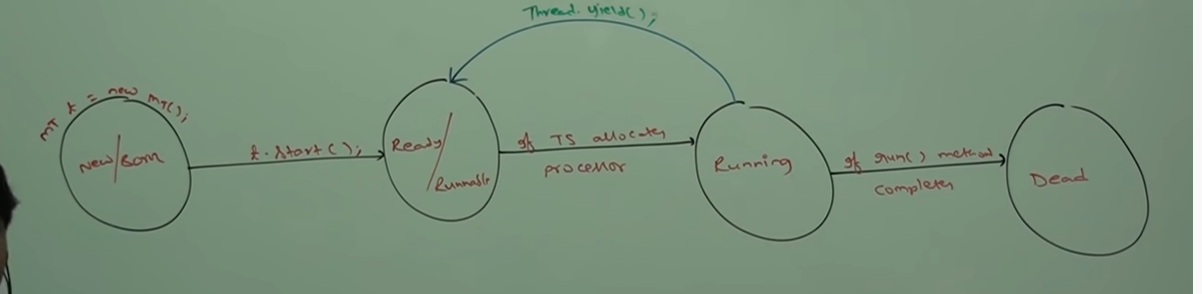 Thread.yield();
MT t = new MT();
New/Born
t.start();
Ready/
Runnable
If TS allocates
processor
Running
If run() method
completes
Dead